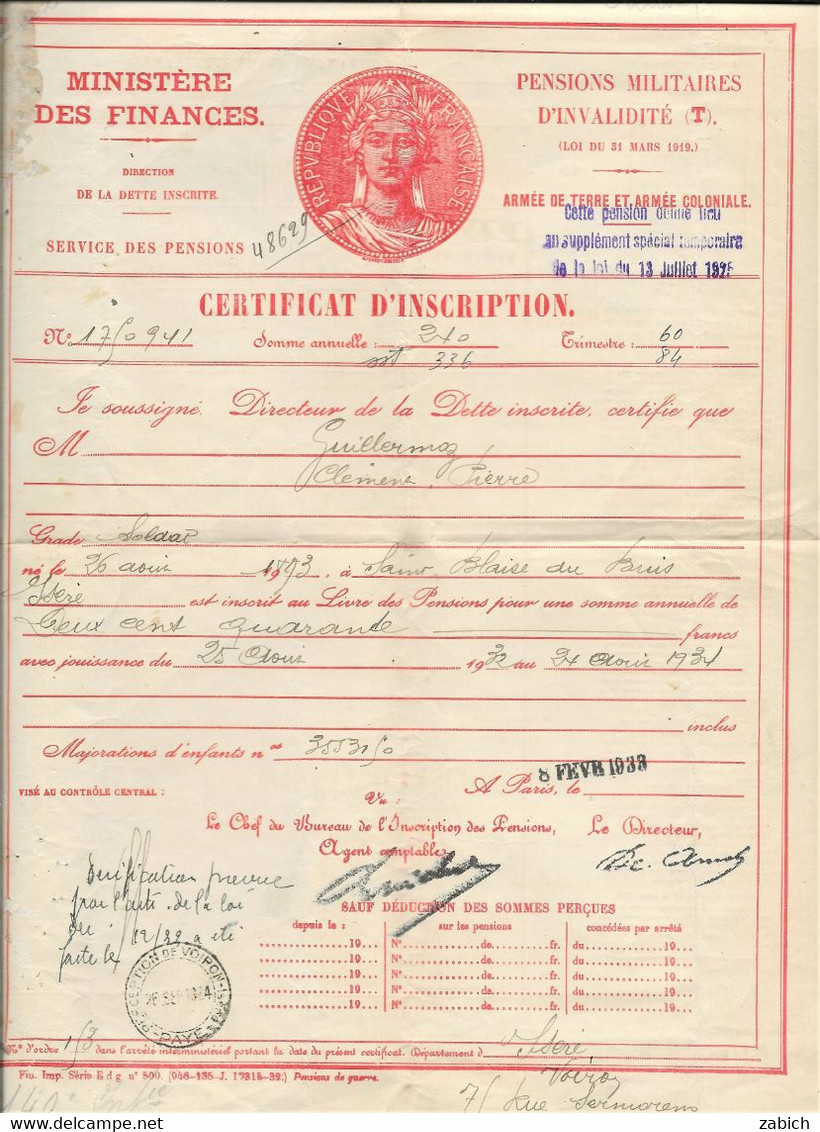 MINISTÈRE
DES FINANCES.
DIRECTION
DE LA DETTE INSCRITE.
SERVICE DES PENSIONS
48629
REPVBLIQVE FRANÇAISE
PENSIONS MILITAIRES
D'INVALIDITÉ (T).
(LOI DU 31 MARS 1919.)
ARMÉE DE TERRE ET ARMÉE COLONIALE.
Cette pension donne lieu
au supplément spécial temporaire
de la loi du 13 Juillet 1925
CERTIFICAT D'INSCRIPTION.
N° 1750941 Somme annuelle : 240 Trimestre : 60
336 84
Je soussigné, Directeur de la Dette inscrite, certifie que
M Guillermoz
Clément Pierre
Grade Soldat
né le 26 aout 1893, à Saint Blaise du Buis
Isère est inscrit au Livre des Pensions pour une somme annuelle de
Deux cent quarante francs
avec jouissance du 25 Aout 1932 au 24 Aout 1934
inclus
Majorations d'enfants nos 355350
8 FEVR 1933
VISÉ AU CONTRÔLE CENTRAL :
A Paris, le
Vu :
Le Chef du Bureau de l'Inscription des Pensions,
Agent comptable
Le Directeur,
prévue
par l'art. de la loi
du 12/32 a été
faite le
PERCEPTION DE VOIRON (ISÈRE)
26 SEP 1934
PAYÉ
SAUF DÉDUCTION DES SOMMES PERÇUES
depuis le : sur les pensions concédées par arrêté
19 N° de fr. du 19
19 N° de fr. du 19
19 N° de fr. du 19
19 N° de fr. du 19
19 N° de fr. du 19
N° d'ordre 153 dans l'arrêté interministériel portant la date du présent certificat. Département d Isère
Voiron
Fin. Imp. Série E d g n° 500. (946-135-J. 17315-32.) Pensions de guerre.
75 Rue Sermorens
zabich